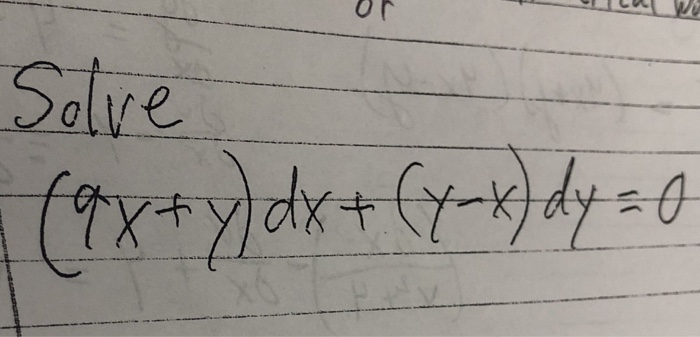 or
Solve
(9x+y)dx+(y-x)dy=0